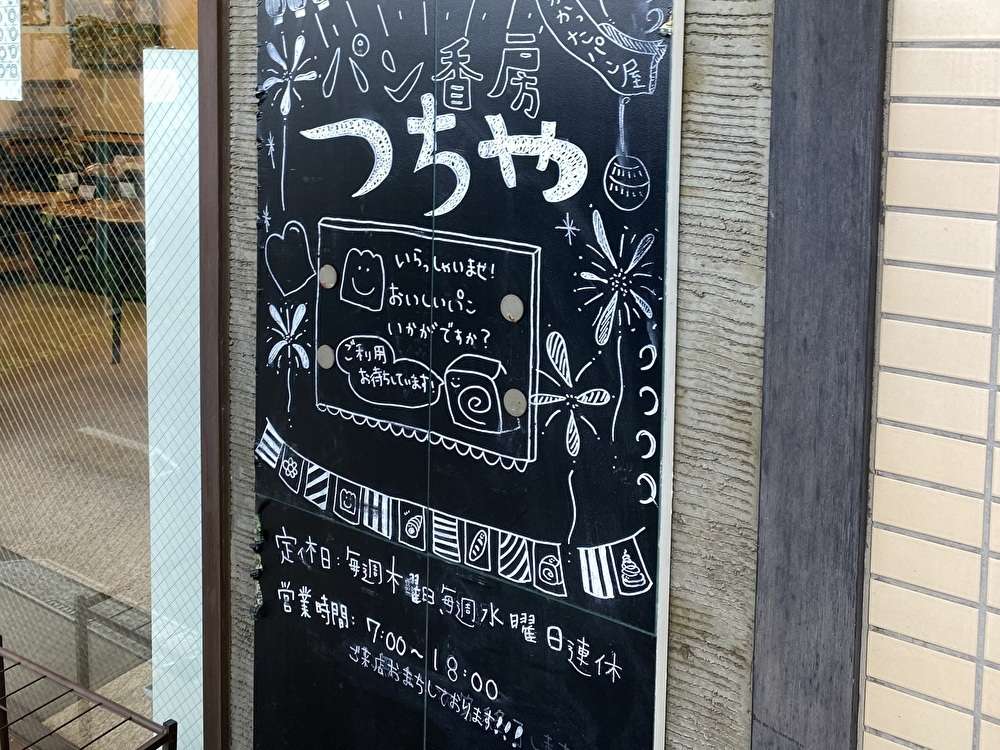 パン香房
かったパン屋
つちや
いらっしゃいませ!
おいしいパン
いかがですか?
ご利用
お待ちしています!
定休日:毎週木曜日毎週水曜日連休
営業時間:7:00~18:00
ご来店おまちしております!!!